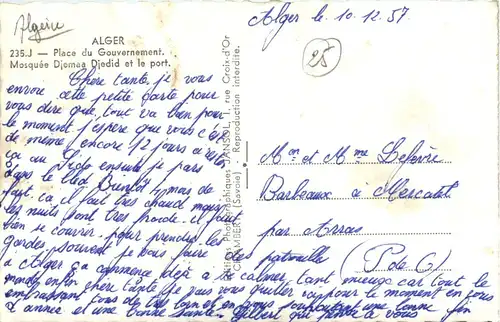 Algérie
ALGER
235.J — Place du Gouvernement.
Mosquée Djemaa Djedid et le port.
Chère tante, je vous
envoie cette petite carte pour
vous dire que, tout va bien pour
le moment j'espère que vous c'est
de même, encore 12 jours à
ça au ensuite je pars
dans le bled Bientôt 7 mois de
fait. Ca il fait très chaud mais
les nuits sont très froide il faut
bien se couvrir pour prendre les
gardes, souvent je dois faire des patrouille
a Alger ça commence déjà à se calmer, tant mieux car tout le
enfin chère tante je vais vous quitter pour le moment en vous
embrassant tous de loin et en vous une bonne fin
d'année et une bonne santé. Gilbert qui pense à vous
Editions Photographiques JANSOL, rue Croix-d'Or
CHAMBÉRY (Savoie) Reproduction Interdite.
Alger le 10.12.57.
25
Mr et Mme Lefèvre
Barbeaux à Mercatel
par Arras
(P de C)